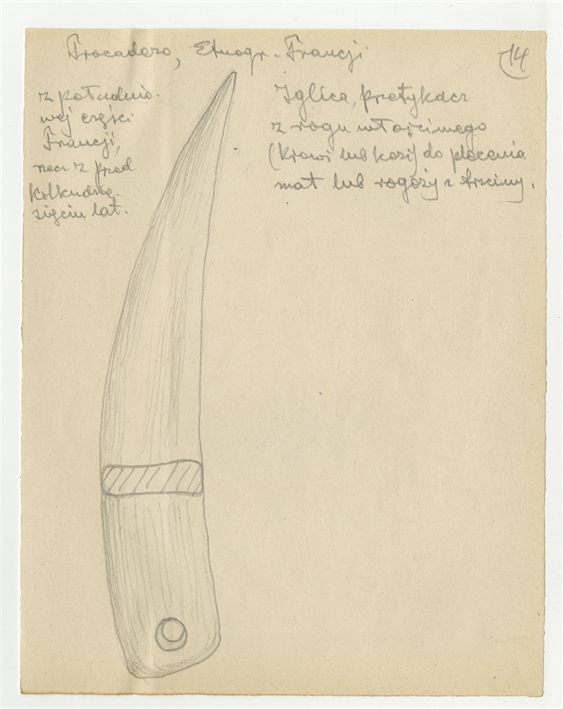 Trocadero, Etnogr. Francji
14
z południo-
wej części
Francji,
rzecz z przed
kilkudzie-
sięciu lat.
Iglica, przetykacz
z rogu właściwego
(krowi lub kozi) do plecenia
mat lub rogoży z trzciny.